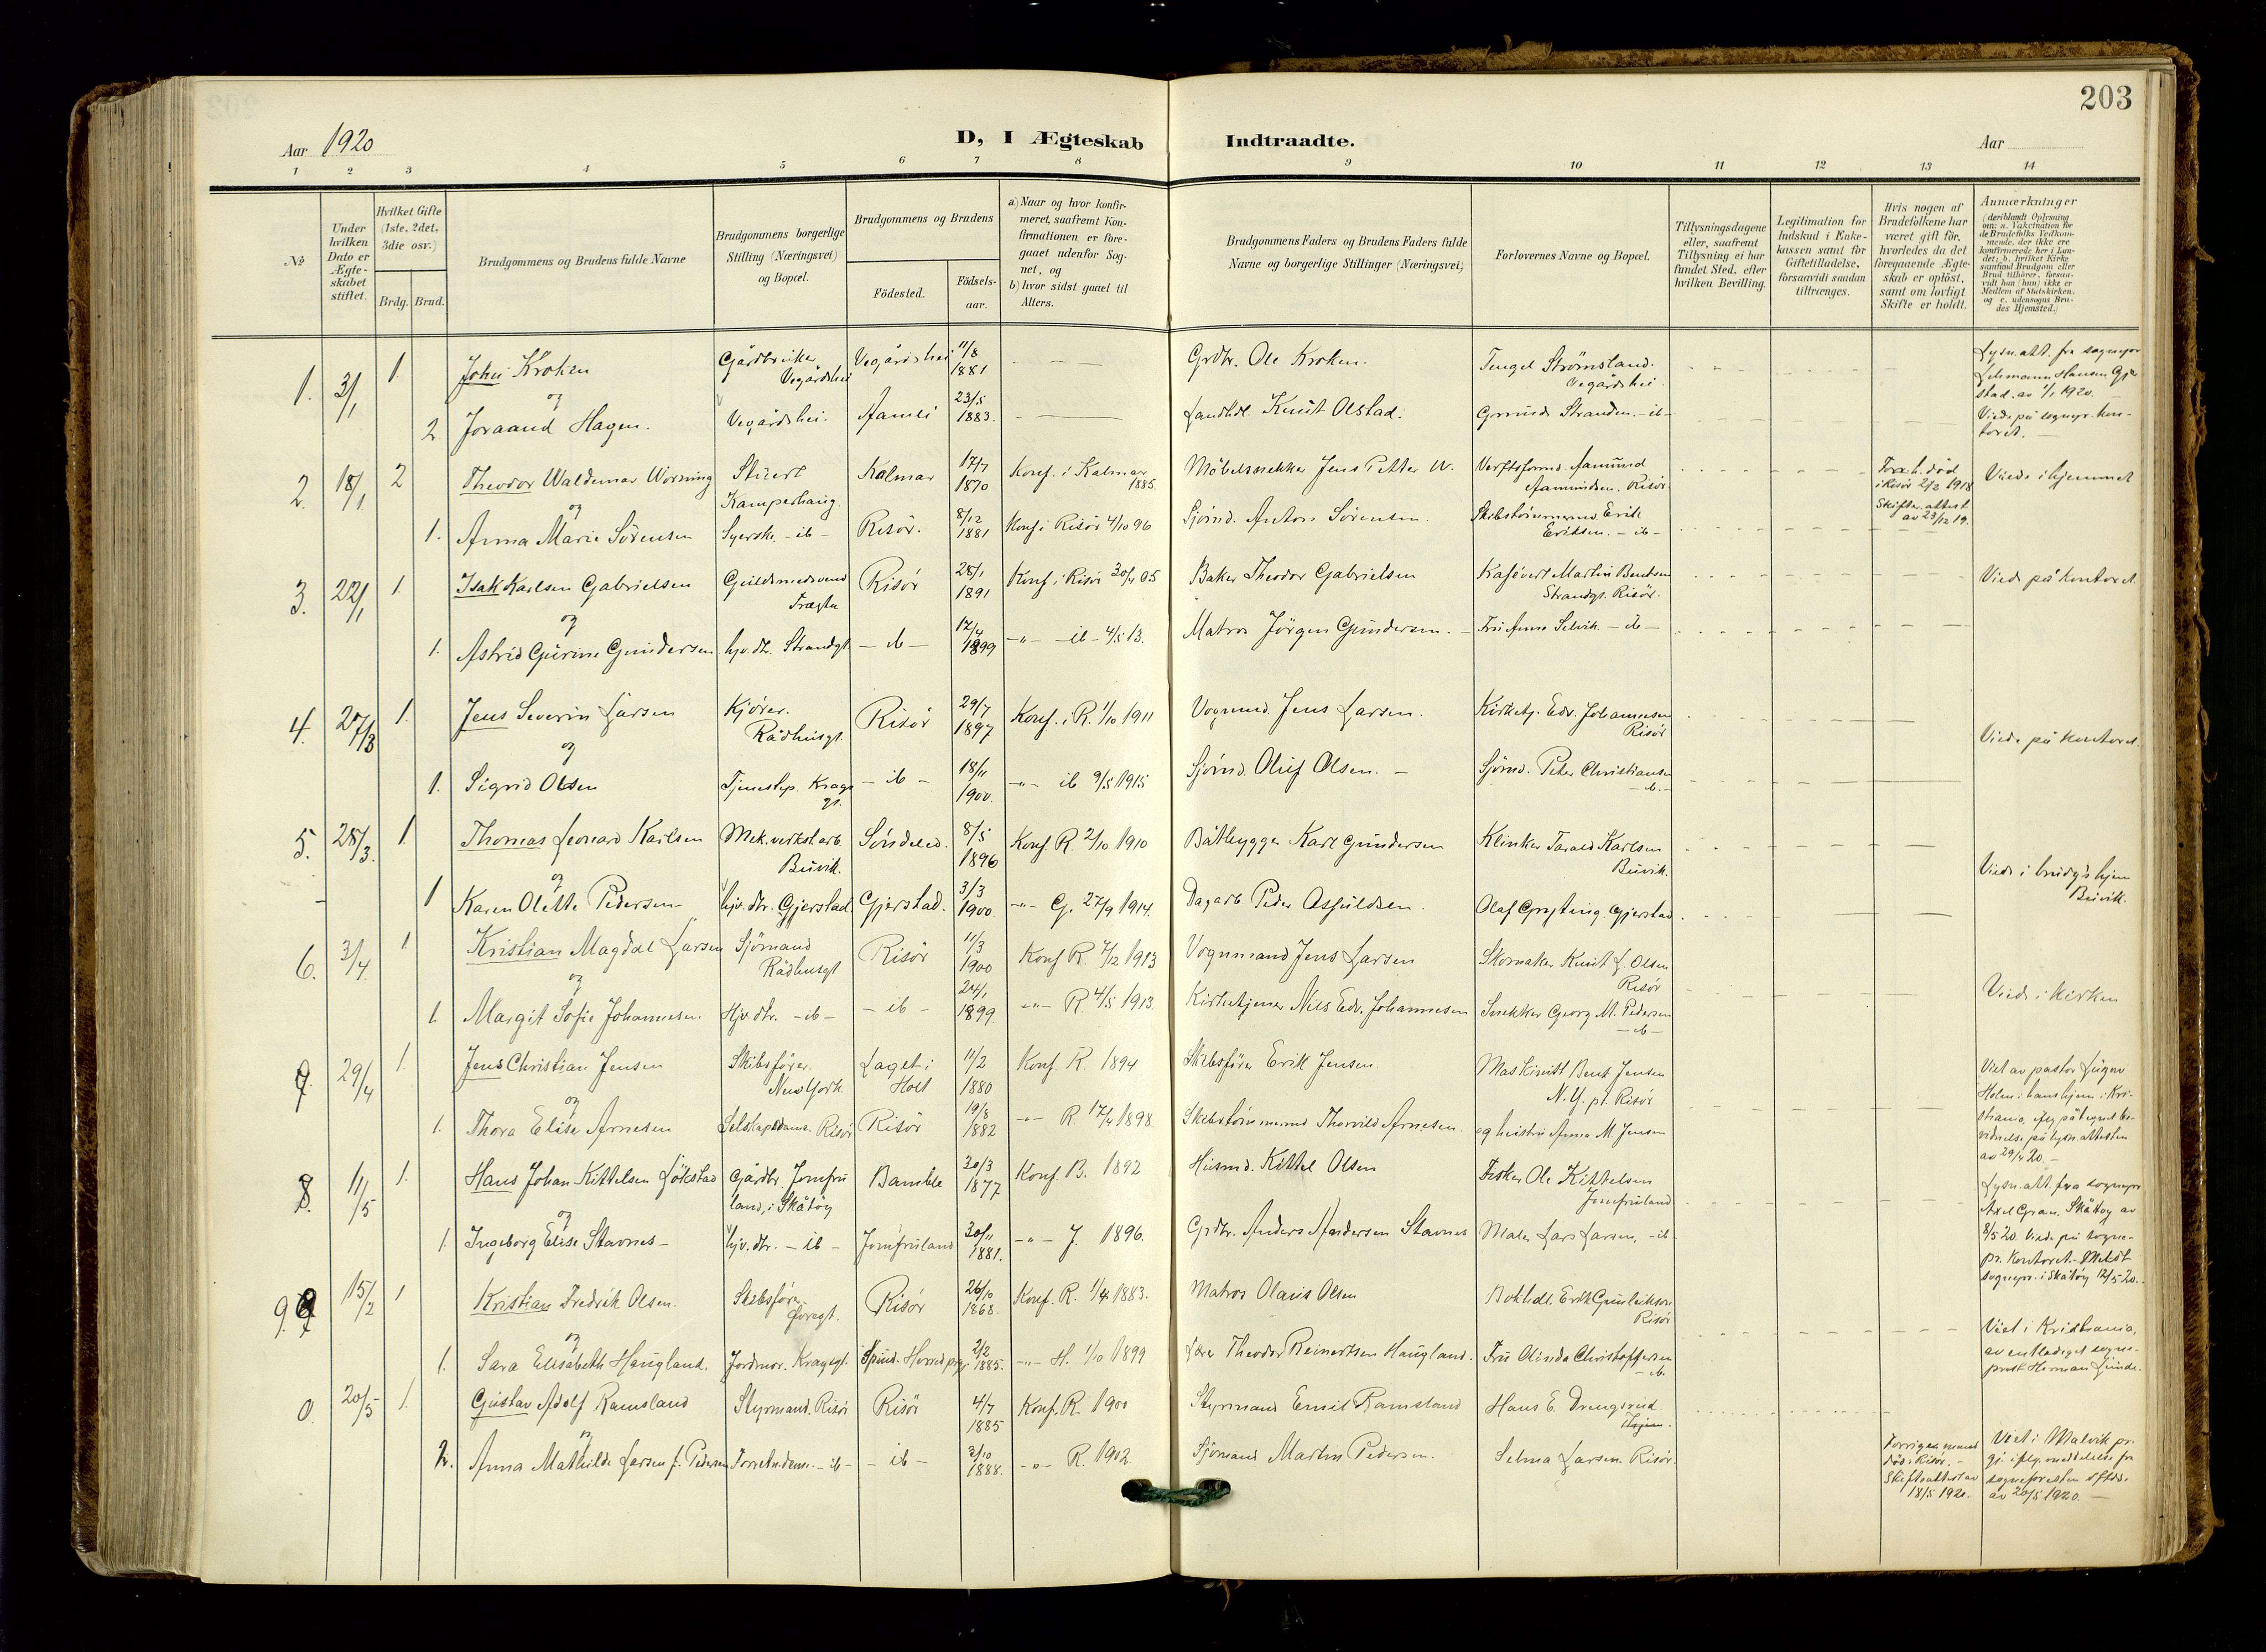 203
Aar 1920
D, I Ægteskab Indtraadte.
Aar
1 2 3 4 5 6 7 8 9 10 11 12 13 14
№
Under hvilken Dato er Ægteskabet stiftet.
Hvilket Gifte (1ste, 2det, 3die osv.)
Brdg. Brud.
Brudgommens og Brudens fulde Navne
Brudgommens borgerlige Stilling (Næringsvei) og Bopæl.
Brudgommens og Brudens
Födested.
Födselsaar.
a) Naar og hvor konfirmeret, saafremt Konfirmationen er foregaaet udenfor Sognet, og
b) hvor sidst gaaet til Alters.
Brudgommens Faders og Brudens Faders fulde Navne og borgerlige Stillinger (Næringsvei)
Forlovernes Navne og Bopæl.
Tillysningsdagene eller, saafremt Tillysning ei har fundet Sted, efter hvilken Bevilling.
Legitimation for Indskud i Enkekassen samt for Giftetilladelse, forsaavidt saadan tiltrænges.
Hvis nogen af Brudefolkene har været gift för, hvorledes da det foregaaende Ægteskab er oplöst, samt om lovligt Skifte er holdt.
Anmærkninger (deriblandt Oplysning om: a. Vakcination for de Brudefolks Vedkommende, der ikke ere konfirmerede her i Landet; b. hvilket Kirkesamfund Brudgom eller Brud tilhörer, forsaavidt han (hun) ikke er Medlem af Statskirken, og c. udensogns Brudes Hjemsted.)
1. 3/1 1. Johu Kroken Gårdbruker Vegårdshei Vegårdshei 11/8 1881 Grdbr. Ole Kroken. Tengel Strømsland. Vegårdshei
Lysn.att. fra sognepr Lehmann Hansen Gjerstad. av 1/1 1920. Viede på sognepr. kontoret.
og
2 Joraand Hagen. Vegårdshei. Aamli 23/5 1883. Landhdl. Knut Olstad. Gunnds Stranden. - ib -
2. 18/1 2 Theodor Waldemar Worning Stuert Kamperhaug. Kalmar 17/7 1870 Konf. i Kalmar 1885. Möbelsnekker Jens Petter W. Verftsformd. Aamund Aamundsen. Risör
Forr. h. död i Risör 2/2 1918 Skifte. attest av 23/12 19.
Viede i hjemmet
og
1. Anna Marie Sörensen Syerske - ib - Risör. 8/12 1881 Konf i Risör 4/10 96 Sjömd. Anton Sörensen. Skibstömrermd. Erik Eriksen. - ib -
3. 22/1 1. Isak Karlsen Gabrielsen Guldsmedsvend Trægta Risör 28/1 1891 Konf. i Risör 30/4 05 Baker Theodor Gabrielsen Kafévert Martin Bentsen Strandgt. Risör.
Viede på kontoret.
og
1. Astrid Gurine Gundersen hjv. dtr. Strandgt. - ib - 17/4 1899 -"- - ib - 4/5 13. Matros Jörgen Gundersen. Fru Anna Selvik. - ib -
4. 27/3 1. Jens Severin Larsen Kjörer. Rådhusgt. Risör 29/7 1897 Konf. i R. 1/10. 1911 Vognmd. Jens Larsen. Kirketj. Edv. Johannesen Risör
Viede på kontoret.
og
1. Sigrid Olsen Tjenestep. Krags gt. - ib - 18/11 1900. -"- ib 9/5 1915 Sjömd. Oluf Olsen. Sjömd. Peter Christiansen - ib. -
5. 28/3. 1 Thomas Leonard Karlsen Mek.verkst.arb. Buvik. Söndeled. 8/5 1896 Konf R. 2/10 1910 Båtbygger Karl Gundersen Klinker Tarald Karlsen Buvik.
Viede i brudg's hjem Buvik.
og
1 Karen Olette Pedersen hjv. dtr. Gjerstad. Gjerstad. 3/3 1900 -"- G. 27/9 1914. Dagarb Peder Asguldsen. Olaf Gryting. Gjerstad.
6. 3/4. 1. Kristian Magdal Larsen Sjömand Rådhusgt Risör 11/3 1900 Konf R. 7/12 1913 Vognmand Jens Larsen Skomaker Knut L. Olsen Risör
Viede i kirken
og
1. Margit Sofie Johannesen Hjv. dtr. - ib - - ib - 24/1 1899. -"- R 4/5 1913. Kirketjener Nils Edv. Johannesen Snekker Georg M. Pedersen - ib -
7. 29/4 1. Jens Christian Jensen Skibsförer. New York. Laget i Holt 11/2 1880 Konf. R. 1894 Skibsförer Erik Jensen Maskinist Bent Jensen N.Y. pt. Risör
Viet av pastor Holm i hans hjem i Kristiania iflg påtegnet bevidnelse på lysn. attesten av 29/4 20. -
og
1. Thora Elise Arnesen Selskapsdame. Risör Risör 19/8 1882 -"- R. 17/4 1898. Skibstömrermd Thorvild Arnesen. og hustru Anna M. Jensen
8. 11/5 1. Hans Johan Kittelsen Lökstad Gårdbr. Jomfruland, i Skåtöy Bamble 30/3 1877 Konf. B. 1892 Husmd. Kittel Olsen Fisker Ole Kittelsen Jomfruland
Lysn. att. fra sognepr Axel Gran. Skåtöy av 8/5 20. Viede på sognepr. kontoret. - Meldt sognepr. i Skåtöy 12/5 20.
og
1. Ingeborg Elise Stavnes - hjv. dtr. - ib - Jomfruland 30/11 1881. -"- J. 1896. Grdbr. Anders Andersen Stavnes Maler Lars Larsen, - ib -
9. 15/2 1 Kristian Fredrik Olsen. Skibsförer Risör 26/10 1868. Konf. R. 1/4 1883. Matros Olaus Olsen Bokhdl. Erik Gunleiksen Risör
Viet i Kristiania, av entlediget sogneprest Herman Lunde.
og
1. Sara Elisabeth Haugland. Jordmor. Kragsgt. Spind. Herred prgj 2/2 1885. -"- H. 1/10 1899 Lærer Theodor Reinertsen Haugland. Fru Olinda Christoffersen - ib.
0. 20/5 1. Gustav Adolf Ramsland Styrmand. Risör Risör 4/7 1885 Konf. R. 1900 Styrmand Emil Ramsland Hans E. Drengsrud
og
2. Anna Mathilde Larsen f. Pedersen Forretn.dame. - ib - - ib - 3/10 1888. -"- R. 1902. Sjömand Martin Pedersen. Selma Larsen. Risör.
Forrige mand död i Risör. - Skifteattest av 18/5 1920.
Viet i Malvik pr. gj. iflg. meddelelse fra sognepresten av 20/5 1920. -